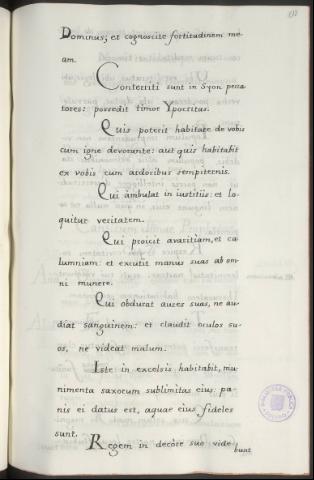 Dominus; et cognoscite fortitudinem me-
am.
Conterriti sunt in Syon pecca
tores: possedit timor Ypocritas.
Quis poterit habitare de vobis
cum igne devorante: aut quis habitabit
ex vobis cum ardoribus sempiternis.
Qui ambulat in iustitiis: et lo-
quitur veritatem.
Qui proicit avaritiam, et ca
lumniam: et excutit manus suas ab om-
ni munere.
Qui obdurat aures suas, ne au-
diat sanguinem: et claudit oculos su-
os, ne videat malum.
Iste in excelsis habitabit, mu-
nimenta saxorum sublimitas eius: pa-
nis ei datus est, aquae eius fideles
sunt.
Regem in decore suo vide
bunt